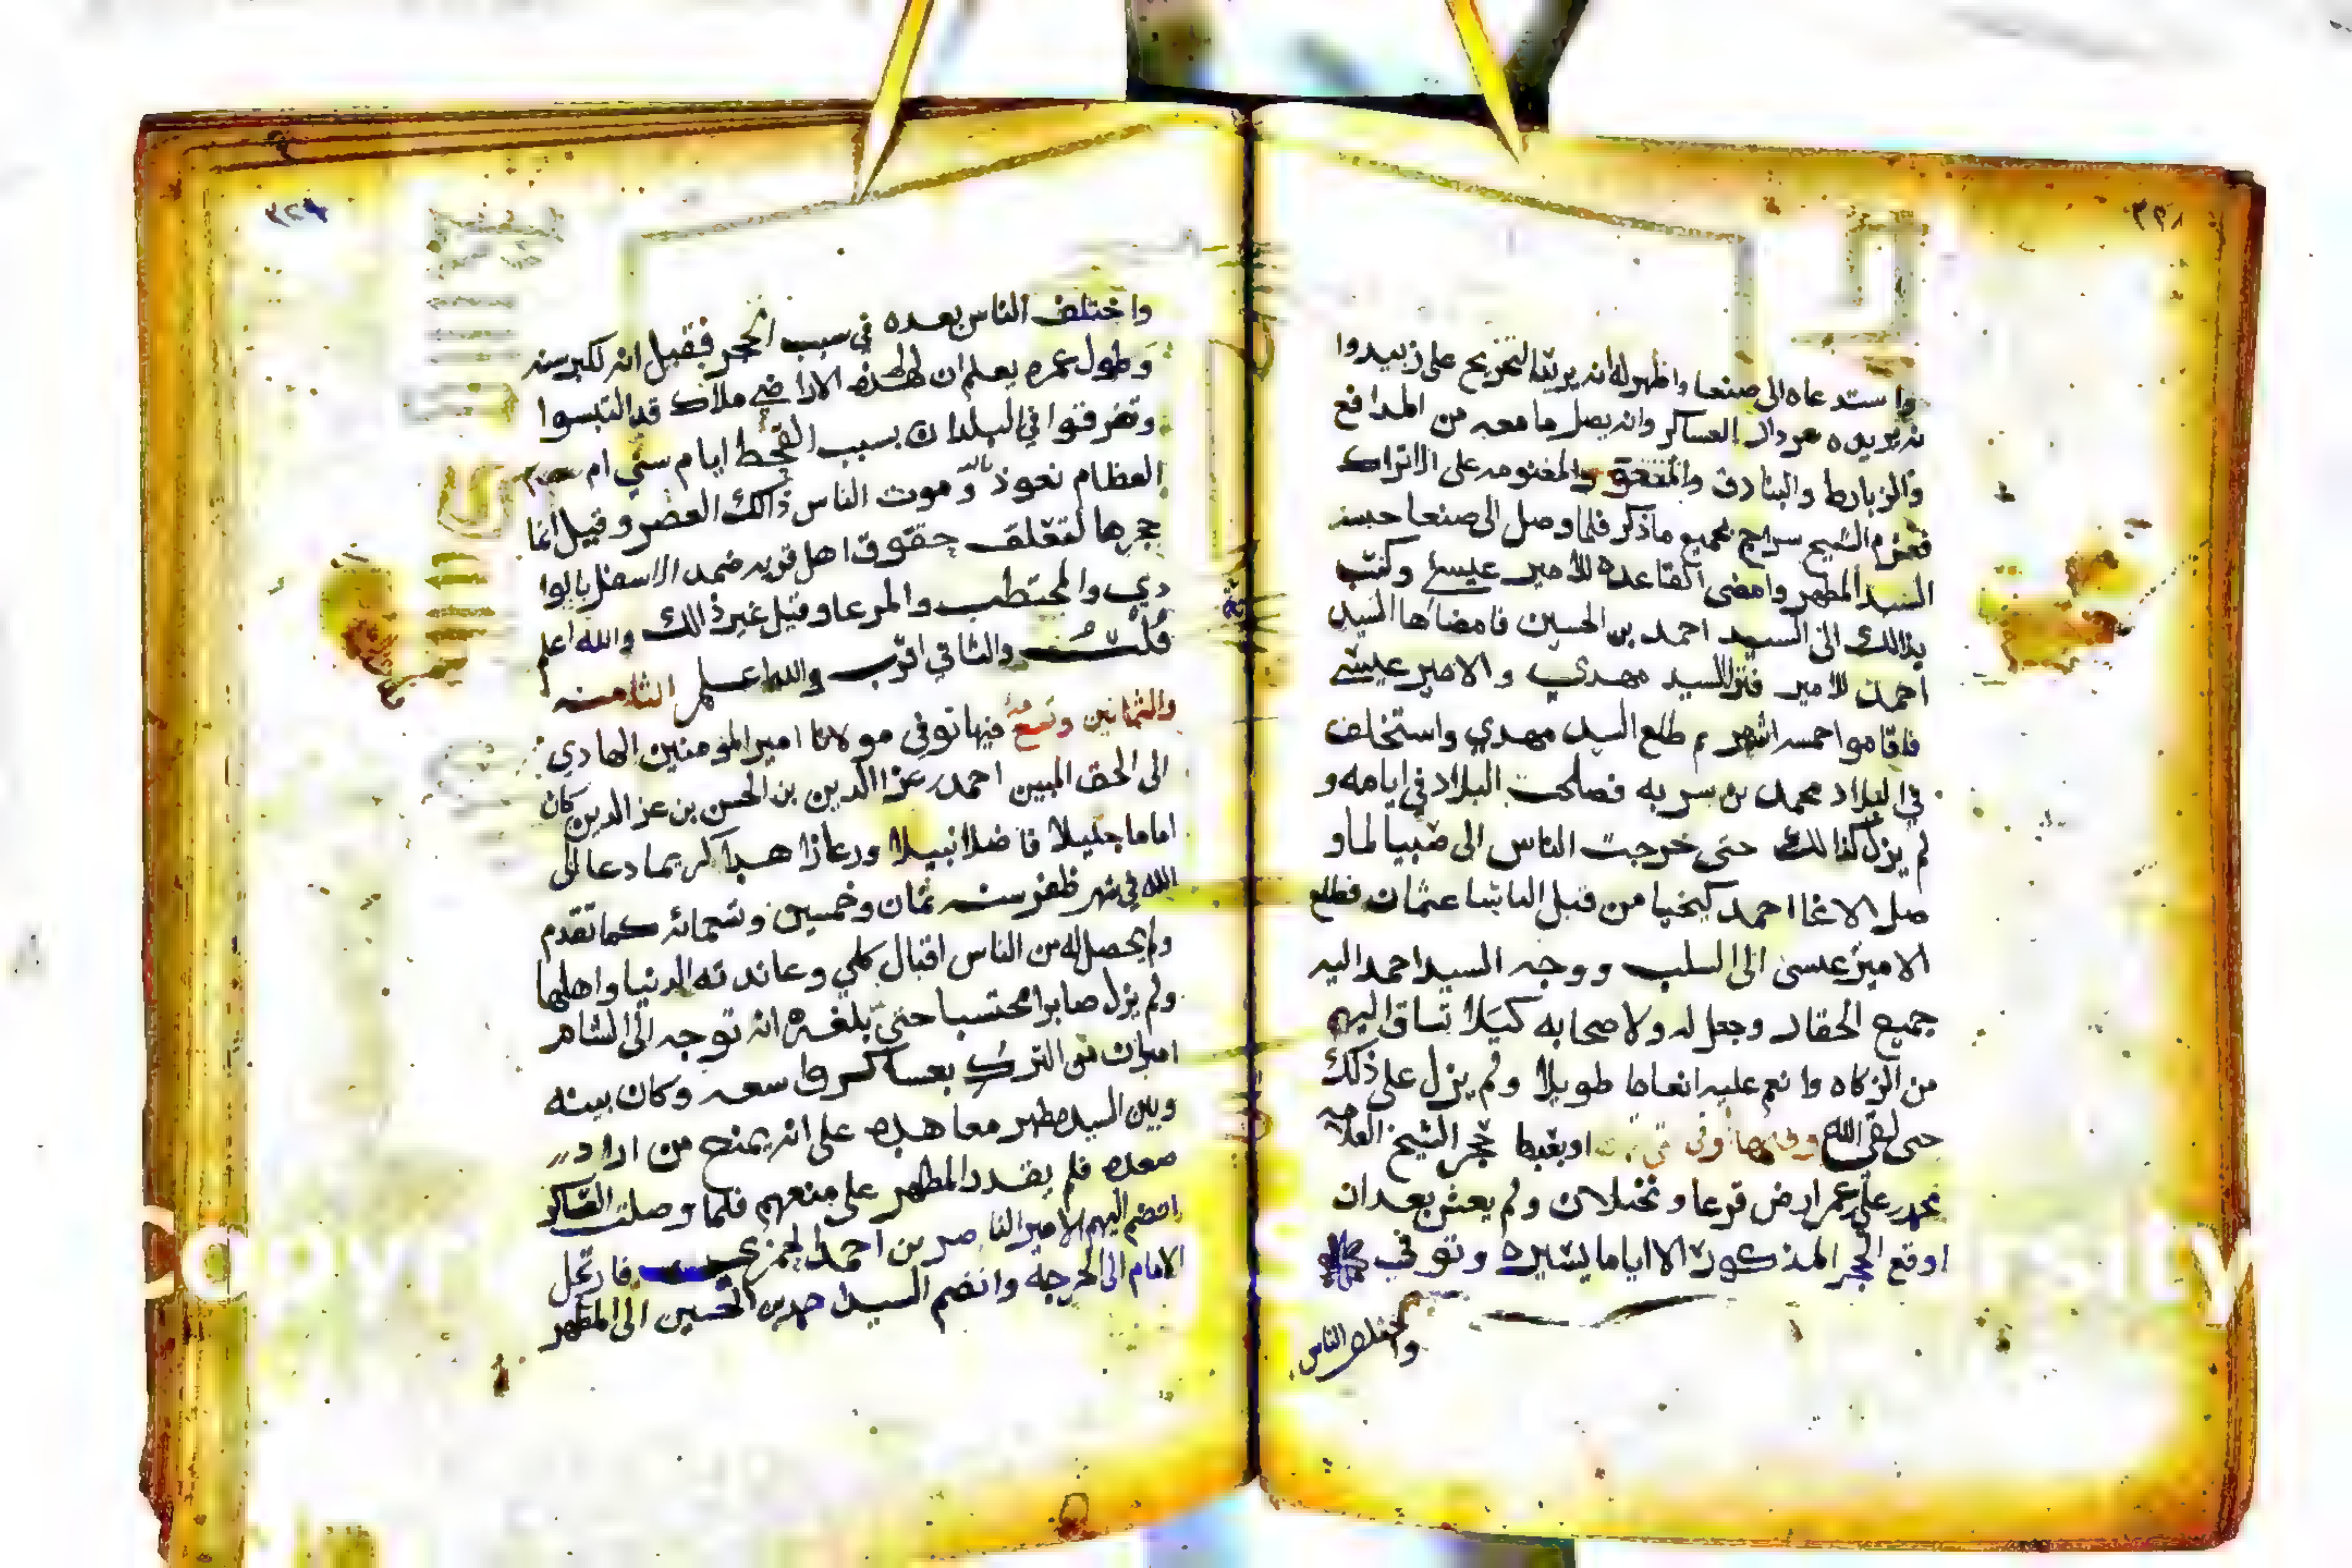 ٣٣٨
واستدعاه الى صنعا واظهر له انه يريد التخريج على زبيد وا
نه يريده سردار العساكر وانه يصل ما معه من المدافع
والزبارط والبنادق والمغنومه على الاتراك
فعزم الشيخ سراج بجميع ما ذكر فلما وصل الى صنعا حبسه
السيد المطهر وامضى القاعده للامير عيسى وكتب
بذالك الى السيد احمد بن الحسين فامضاها السيد
احمد للامير فنزل السيد مهدي والامير عيسى
فاقاموا خمسه اشهر ثم طلع السيد مهدي واستخلف
في البلاد محمد بن سريه فصلحت البلاد في ايامه و
لم يزل كذالك حتى خرجت الناس الى ضبيا لما و
صل الاغا احمد كيخيا من قبل الباشا عثمان فطلع
الامير عيسى الى السلب ووجه السيد احمد اليه
جميع الحقار وجعل له ولاصحابه كيلا تساق اليهم
من الزكاه وانعم عليه انعاما طويلا ولم يزل على ذلك
حتى لقي الله وفيها اوبغبطا حجر الشيخ العلامه
محمد بن علي بن عمر ارض قرعا ونخلان ولم يعش بعد ان
اوقع الحجر المذكور الا اياما يسيره وتوفي
واختلف الناس
٣٣٩
واختلف الناس بعده في سبب الحجر فقيل انه لكبر سنه
وطول عمره يعلم ان لهذه الاراضي ملاك قد التبسوا
وتفرقوا في البلدان بسبب القحط ايام سني ام
العظام نعوذ بالله وموت الناس ذالك العصر وقيل انما
حجرها لتعلق حقوق اهل قريه ضمد الاسفل بالوا
دي والمحتطب والمرعا وقيل غير ذالك والله اعلم
قلت والثاني اقرب والله اعلم الثامنه
والثمانين وتسعمه فيها توفي مولانا امير المؤمنين الهادي
الى الحق المبين احمد بن عز الدين بن الحسن بن عز الدين كان
اماما جليلا فاضلا نبيلا ورعا زاهدا كريما دعا الى
الله في شهر ظفر سنه ثمان وخمسين وتسعمائه كما تقدم
ولم يحصل له من الناس اقبال كلي وعاندته الدنيا واهلها
ولم يزل صابرا محتسبا حتى بلغه انه توجه الى الشام
اميران من الترك بعساكر واسعه وكان بينه
وبين السيد مطهر معاهده على انه يمنع من اراد
صعده فلم يقدر المطهر على منعهم فلما وصلت العساكر
انضم اليهم الامير الناصر بن احمد الحمزي فارتحل
الامام الى الحرجه وانضم السيد احمد بن الحسين الى المطهر